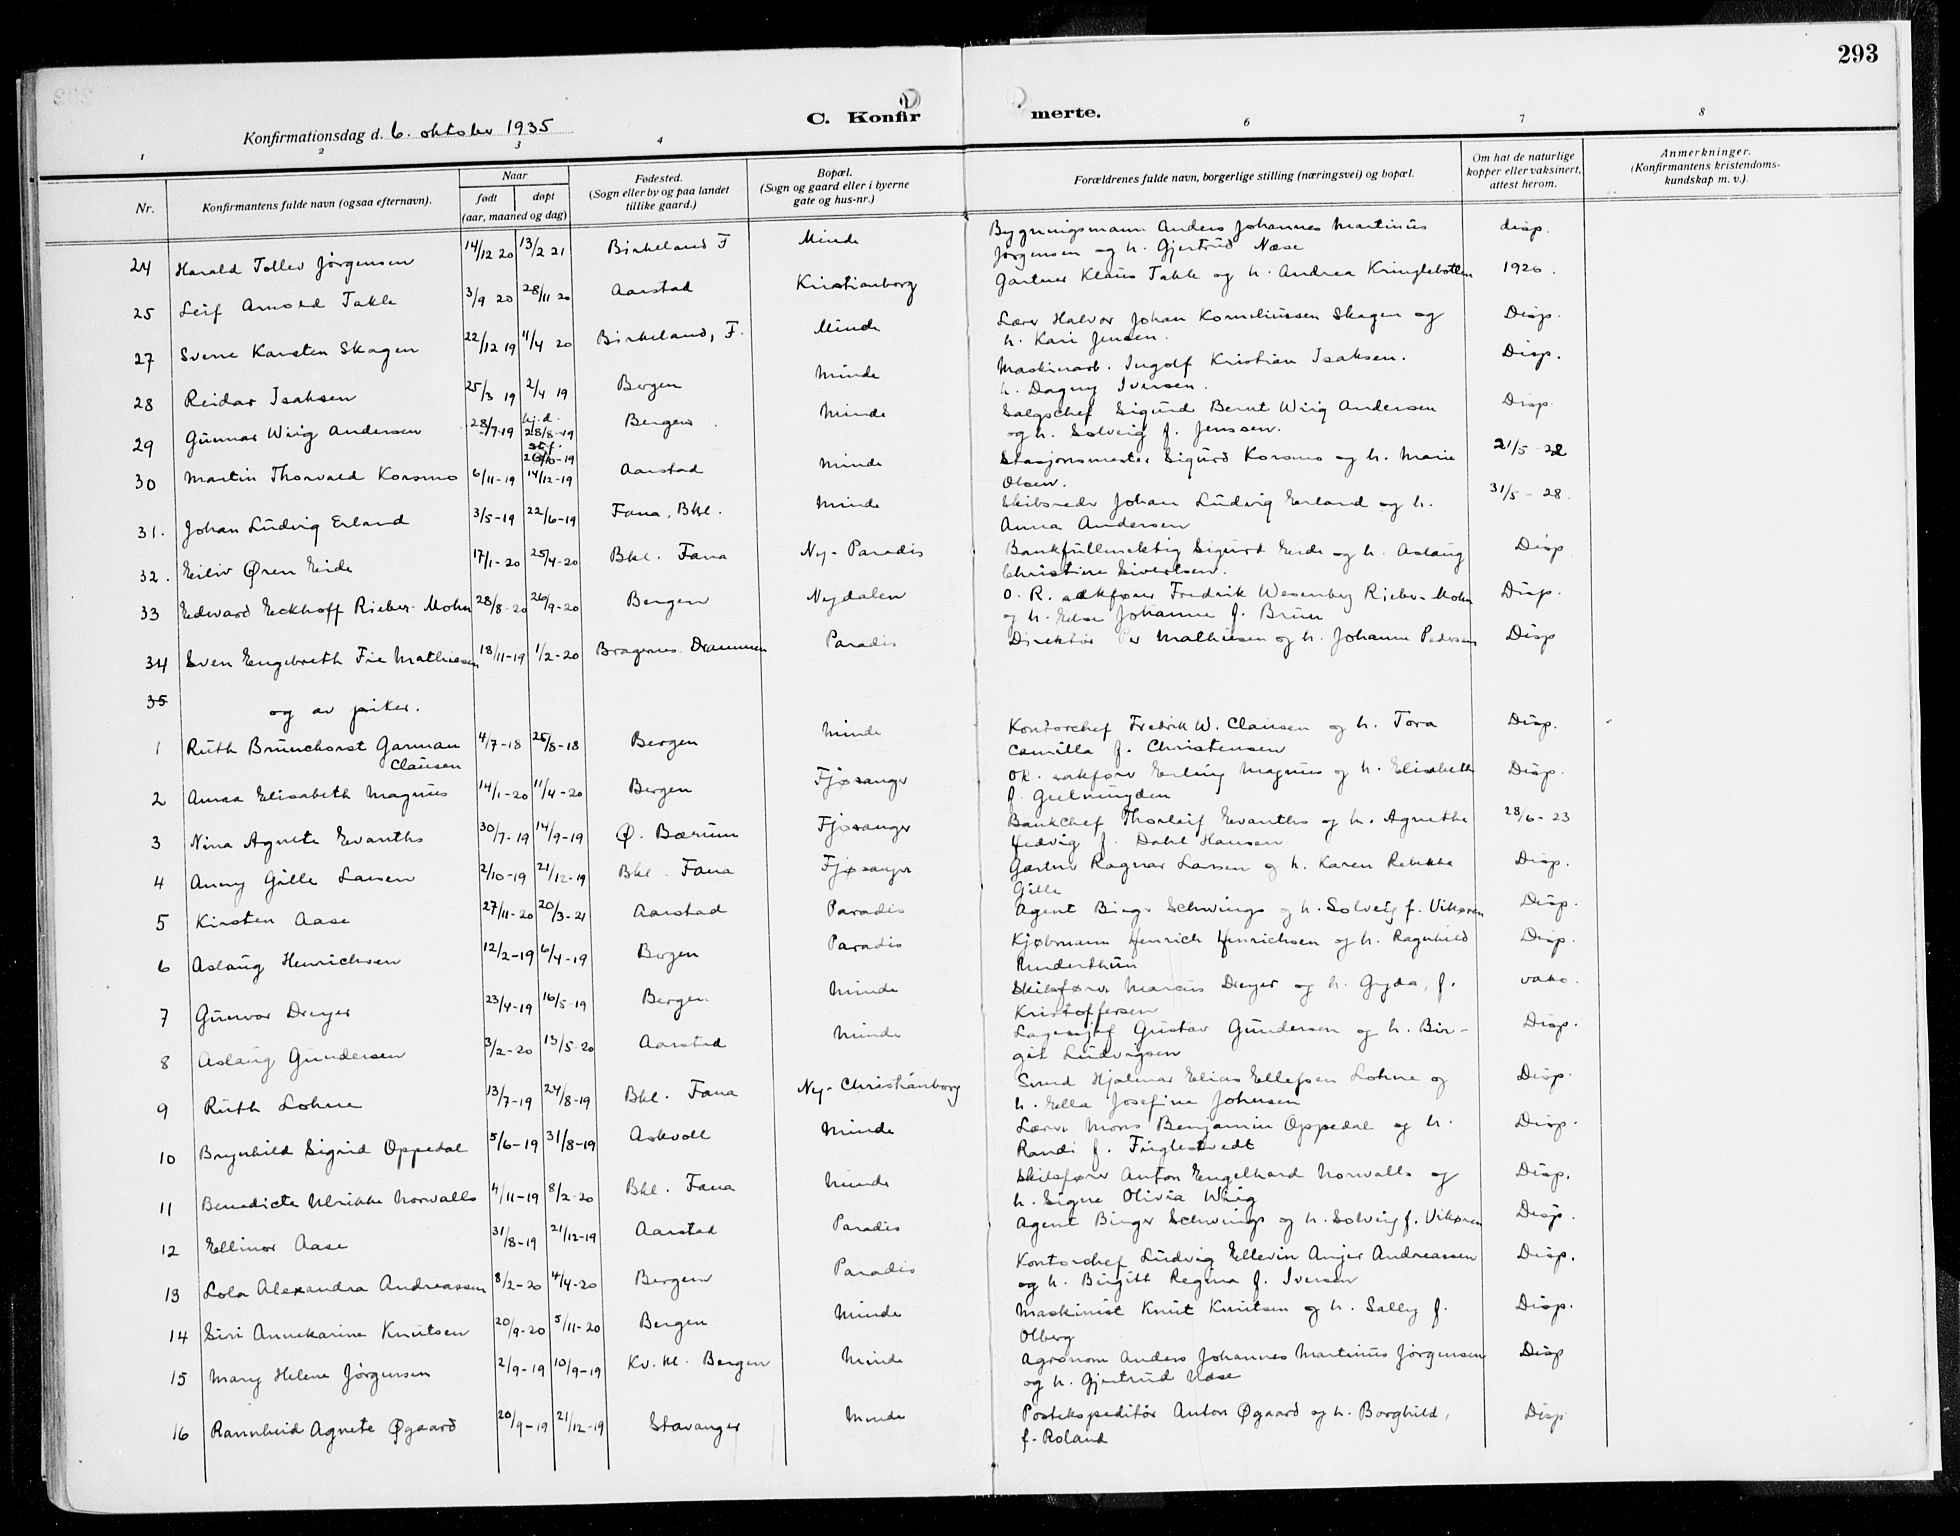 293
Konfirmationsdag d. 6. oktober 1935
C. Konfir merte.
1 2 3 4 6 7 8
Nr.
Konfirmantens fulde navn (ogsaa efternavn).
Naar
født døpt
(aar, maaned og dag)
Fødested.
(Sogn eller by og paa landet
tillike gaard.)
Bopæl.
(Sogn og gaard eller i byerne
gate og hus-nr.)
Forældrenes fulde navn, borgerlige stilling (næringsvei) og bopæl.
Om hat de naturlige
kopper eller vaksinert,
attest herom.
Anmerkninger.
(Konfirmantens kristendoms-
kundskap m. v.).
24 Harald Tollev Jørgensen 14/12 20 13/2 21 Birkeland F Minde Bygningsmann Anders Johannes Martinus disp.
Jørgensen og h. Gjertrud Næse
25 Leif Arnold Takle 3/9 20 28/11 20 Aarstad Kristianborg Gartner Klaus Takle og h. Andrea Kringlebotten 1926.
27 Sverre Karsten Skagen 22/12 19 11/4 20 Birkeland, F. Minde Lærer Halvor Johan Korneliussen Skagen og Disp.
h. Kari Jensen.
28 Reidar Isaksen 25/3 19 2/4 19 Bergen Minde Maskinarb. Ingolf Kristian Isaksen. Disp.
h. Dagny Iversen.
29 Gunnar Wiig Andersen 28/7-19 hj.d. 28/8-19 Bergen Minde Salgschef Sigurd Bernt Wiig Andersen Disp.
stf.
og h. Solveig f. Jenssen.
30 Martin Thorvald Korsmo 6/11-19 14/12-19 Aarstad Minde Stasjonsmester Sigurd Korsmo og h. Marie 21/5-28
Olsen.
31. Johan Ludvig Erland 3/5-19 22/6-19 Fana, Bkl. Minde Skibsreder Johan Ludvig Erland og h. 31/5-28.
Anna Andersen
32. Eiliv Øren Eide 17/1-20 25/4-20 Bkl. Fana Ny-Paradis Bankfullmektig Sigurd Eide og h. Aslaug Disp
Christine Sivertsen.
33 Edward Eckhoff Rieber-Mohn 28/8-20 26/9-20 Bergen Nydalen O. R. sakfører Fredrik Wesenberg Rieber-Mohn Disp.
og h. Else Johanne f. Bruun
34 Sven Engebreth Fie Mathiesen 18/11-19 1/2-20 Bragernes. Drammen Paradis Direktør Per Mathiesen og h. Johanne Pedersen Disp
35
og av piker.
1 Ruth Brunchorst Garman 4/7-18 25/8-18 Bergen Minde Kontorchef Fredrik W. Clausen og h. Tora Disp.
Clausen
Camilla f. Christensen
2 Anna Elisabeth Magnus 14/1-20 11/4-20 Bergen Fjøsanger OR. sakfører Erling Magnus og h. Elisabeth Disp.
f. Geelmuyden
3 Nina Agnete Evanths 30/7-19 14/9-19 Ø. Bærum Fjøsanger Bankchef Thorleif Evanths og h. Agnethe 28/6-23
Hedvig f. Dahl Hansen
4 Anny Gille Larsen 2/10-19 21/12-19 Bkl. Fana Fjøsanger Gartner Ragnar Larsen og h. Karen Rebekka Disp.
Gille
5 Kirsten Aase 27/11-20 20/3-21 Aarstad Paradis Agent Birger Schwings og h. Solveig f. Vikøren Disp.
6 Aslaug Henrichsen 12/2-19 6/4-19 Bergen Paradis Kjøbmann Henrich Henrichsen og h. Ragnhild Disp.
Underthun
7 Gunvor Dreyer 23/4-19 16/5-19 Bergen Minde Skibsfører Marcus Dreyer og h. Gyda, f. vakc.
Kristoffersen
8 Aslaug Gundersen 3/2-20 13/5-20 Aarstad Minde Lagersjef Gustav Gundersen og h. Bir- Disp.
git Ludvigsen
9 Ruth Lohne 13/7-19 24/8-19 Bkl. Fana Ny-Christianborg Smed Hjalmar Elias Ellefsen Lohne og Disp.
h. Ella Josefine Johnsen
10 Brynhild Sigrid Oppedal 5/6-19 31/8-19 Askvoll Minde Lærer Mons Benjamin Oppedal og h. Disp.
Randi f. Fuglestvedt
11 Benedicte Ulrikke Norvalls 4/11-19 8/2-20 Bkl. Fana Minde Skibsfører Anton Engelhard Norvalls og Disp.
h. Signe Olivia Wiig
12 Ellinor Aase 31/8-19 21/12-19 Aarstad Paradis Agent Birger Schwings og h. Solveig f. Vikøren Disp.
13 Lola Alexandra Andreassen 8/2-20 4/4-20 Bergen Paradis Kontorchef Ludvig Ellevin Anjer Andreassen Disp.
og h. Birgitt Regina f. Iversen
14 Siri Annekarine Knutsen 20/9-20 5/11-20 Bergen Minde Maskinist Knut Knutsen og h. Sally f. Disp.
Olberg
15 Mary Helene Jørgensen 2/9-19 10/9-19 Kv. kl. Bergen Minde Agronom Anders Johannes Martinus Jørgensen Disp
og h. Gjertrud Næse
16 Rannheid Agnete Øgaard 20/9-19 21/12-19 Stavanger Minde Postekspeditør Anton Øgaard og h. Borghild, Disp
f. Roland